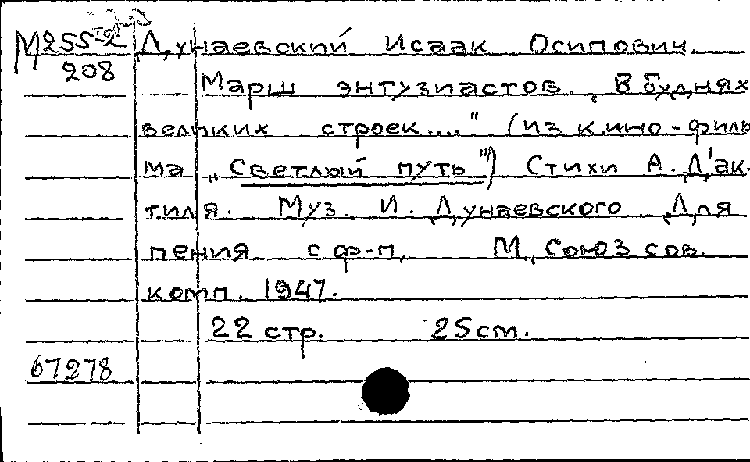 М255-2 Дунаевский Исаак Осипович.
208 Марш энтузиастов. „В буднях
великих строек...." (из кино-филь
ма „Светлый путь") Стихи А. Д'ак.
тиля. Муз. И. Дунаевского Для
пения с ф-п. М., Союз сов.
комп. 1947.
22 стр. 25 см.
67278